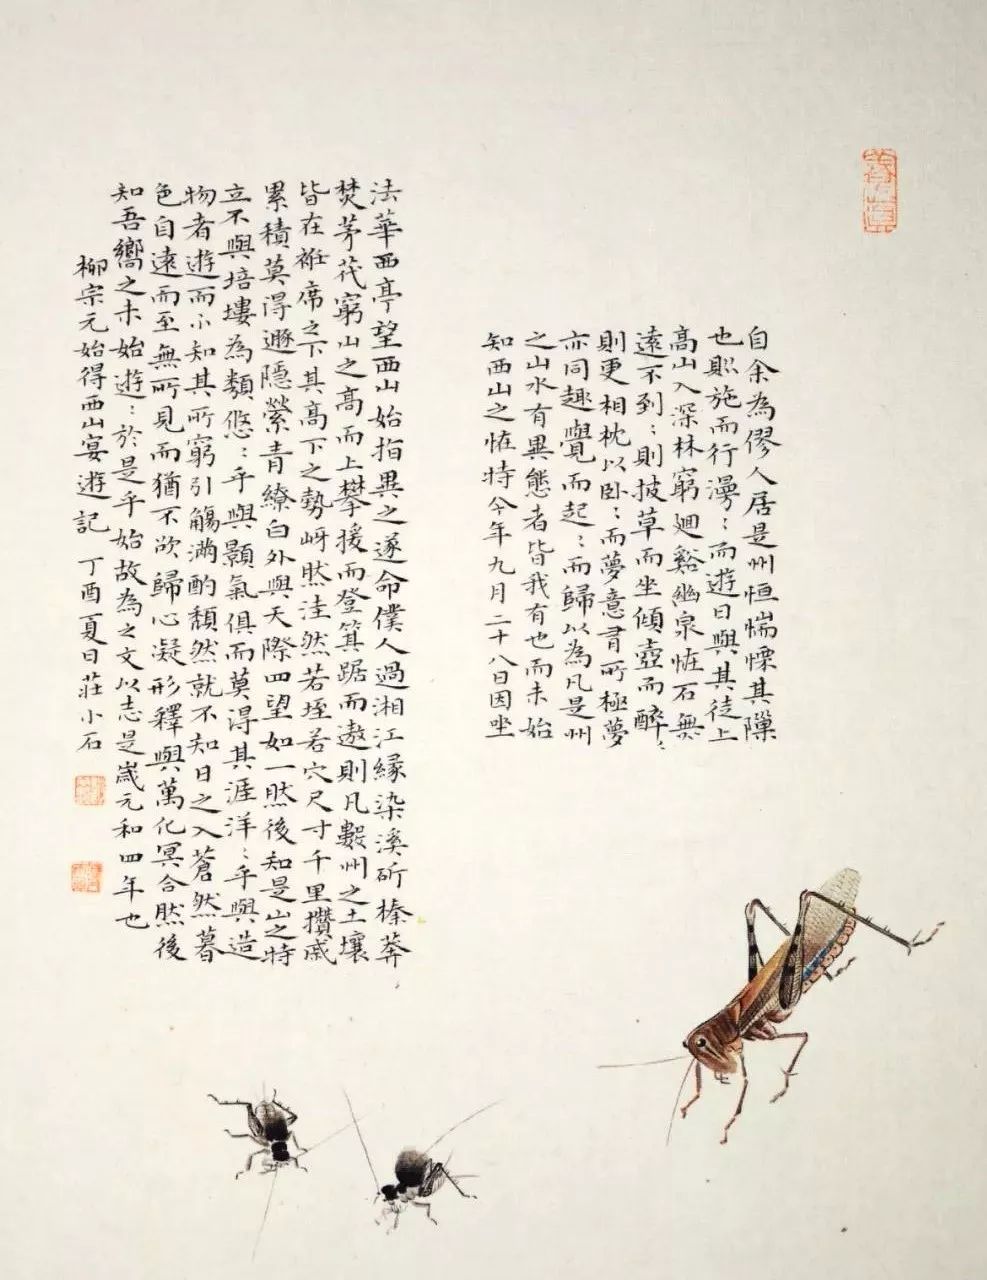 自余為僇人居是州恒惴慄其隟
也則施而行漫〻而遊日與其徒上
高山入深林窮迴谿幽泉恠石無
遠不到〻則披草而坐傾壺而醉〻
則更相枕以卧〻而夢意有所極夢
亦同趣覺而起〻而歸以為凡是州
之山水有異態者皆我有也而未始
知西山之恠特今年九月二十八日因坐
法華西亭望西山始指異之遂命僕人過湘江緣染溪斫榛莽
焚茅茷窮山之高而上攀援而登箕踞而遨則凡數州之土壤
皆在袵席之下其高下之勢岈然洼然若垤若穴尺寸千里攢戚
累積莫得遯隱縈青繚白外與天際四望如一然後知是山之特
立不與培塿為類悠〻乎與顥氣俱而莫得其涯洋〻乎與造
物者遊而不知其所窮引觴滿酌頹然就不知日之入蒼然暮
色自遠而至無所見而猶不欲歸心凝形釋與萬化冥合然後
知吾嚮之未始遊〻於是乎始故為之文以志是歲元和四年也
柳宗元始得西山宴遊記 丁酉夏日莊小石